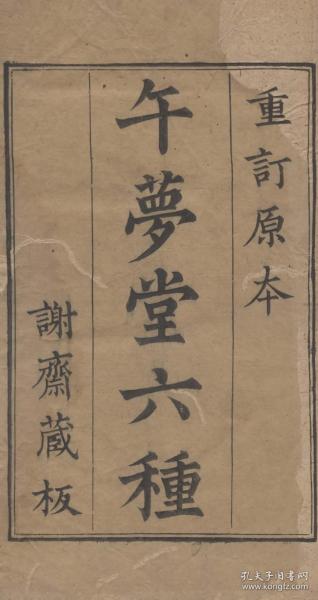 重訂原本
午夢堂六種
謝齋蔵板
孔夫子旧书网
www.kongfz.com